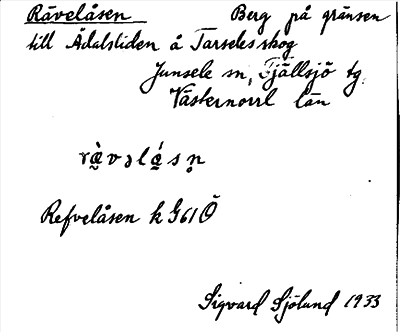 Rävelåsen Berg på gränsen
till Ådalsliden å Tarselesskog
Junsele sn, Fjällsjö tg.
Västernorrl län
Refvelåsen k G61Ö
Sigvard Sjölund 1933